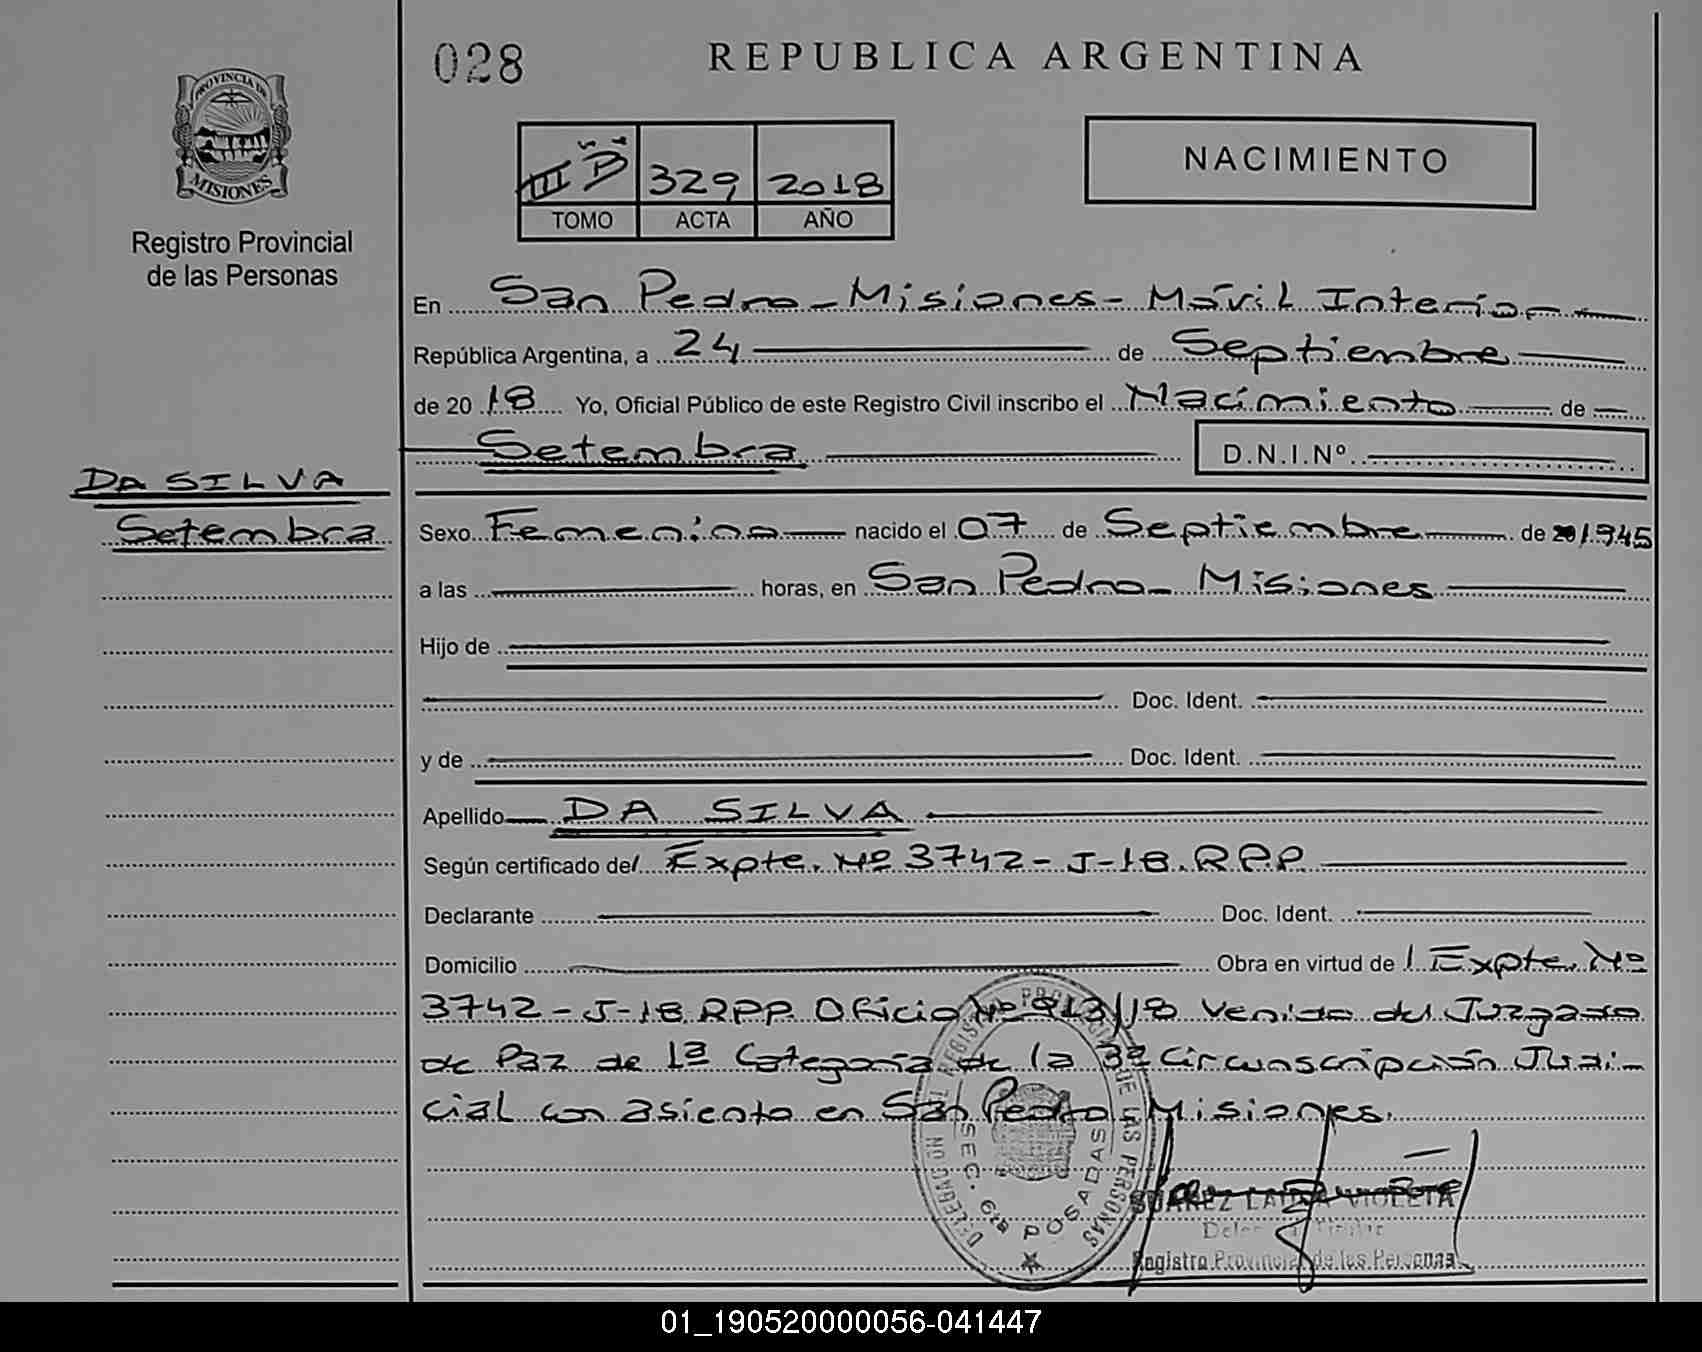 028
REPUBLICA ARGENTINA
PROVINCIA DE
MISIONES
Registro Provincial
de las Personas
III B 329 2018
TOMO ACTA AÑO
NACIMIENTO
En San Pedro - Misiones - Móvil Interior
República Argentina, a 24 de Septiembre
de 2018 Yo, Oficial Público de este Registro Civil inscribo el Nacimiento de
Setembra D.N.I.Nº
DA SILVA
Setembra
Sexo Femenino nacido el 07 de Septiembre de 1.945
a las horas, en San Pedro - Misiones
Hijo de
Doc. Ident.
y de Doc. Ident.
Apellido DA SILVA
Según certificado de/ Expte. Nº 3742-J-18.RPP
Declarante Doc. Ident.
Domicilio Obra en virtud de / Expte. Nº
3742-J-18.RPP Oficio Nº 913/18 Venido del Juzgado
de Paz de 1ª Categoría de la 3ª Circunscripción Judi-
cial con asiento en San Pedro - Misiones.
DELEGACION DEL REGISTRO PROVINCIAL DE LAS PERSONAS
SEC. 6ta POSADAS
SUAREZ LAURA VIOLETA
Delegada Titular
Registro Provincial de las Personas
01_190520000056-041447